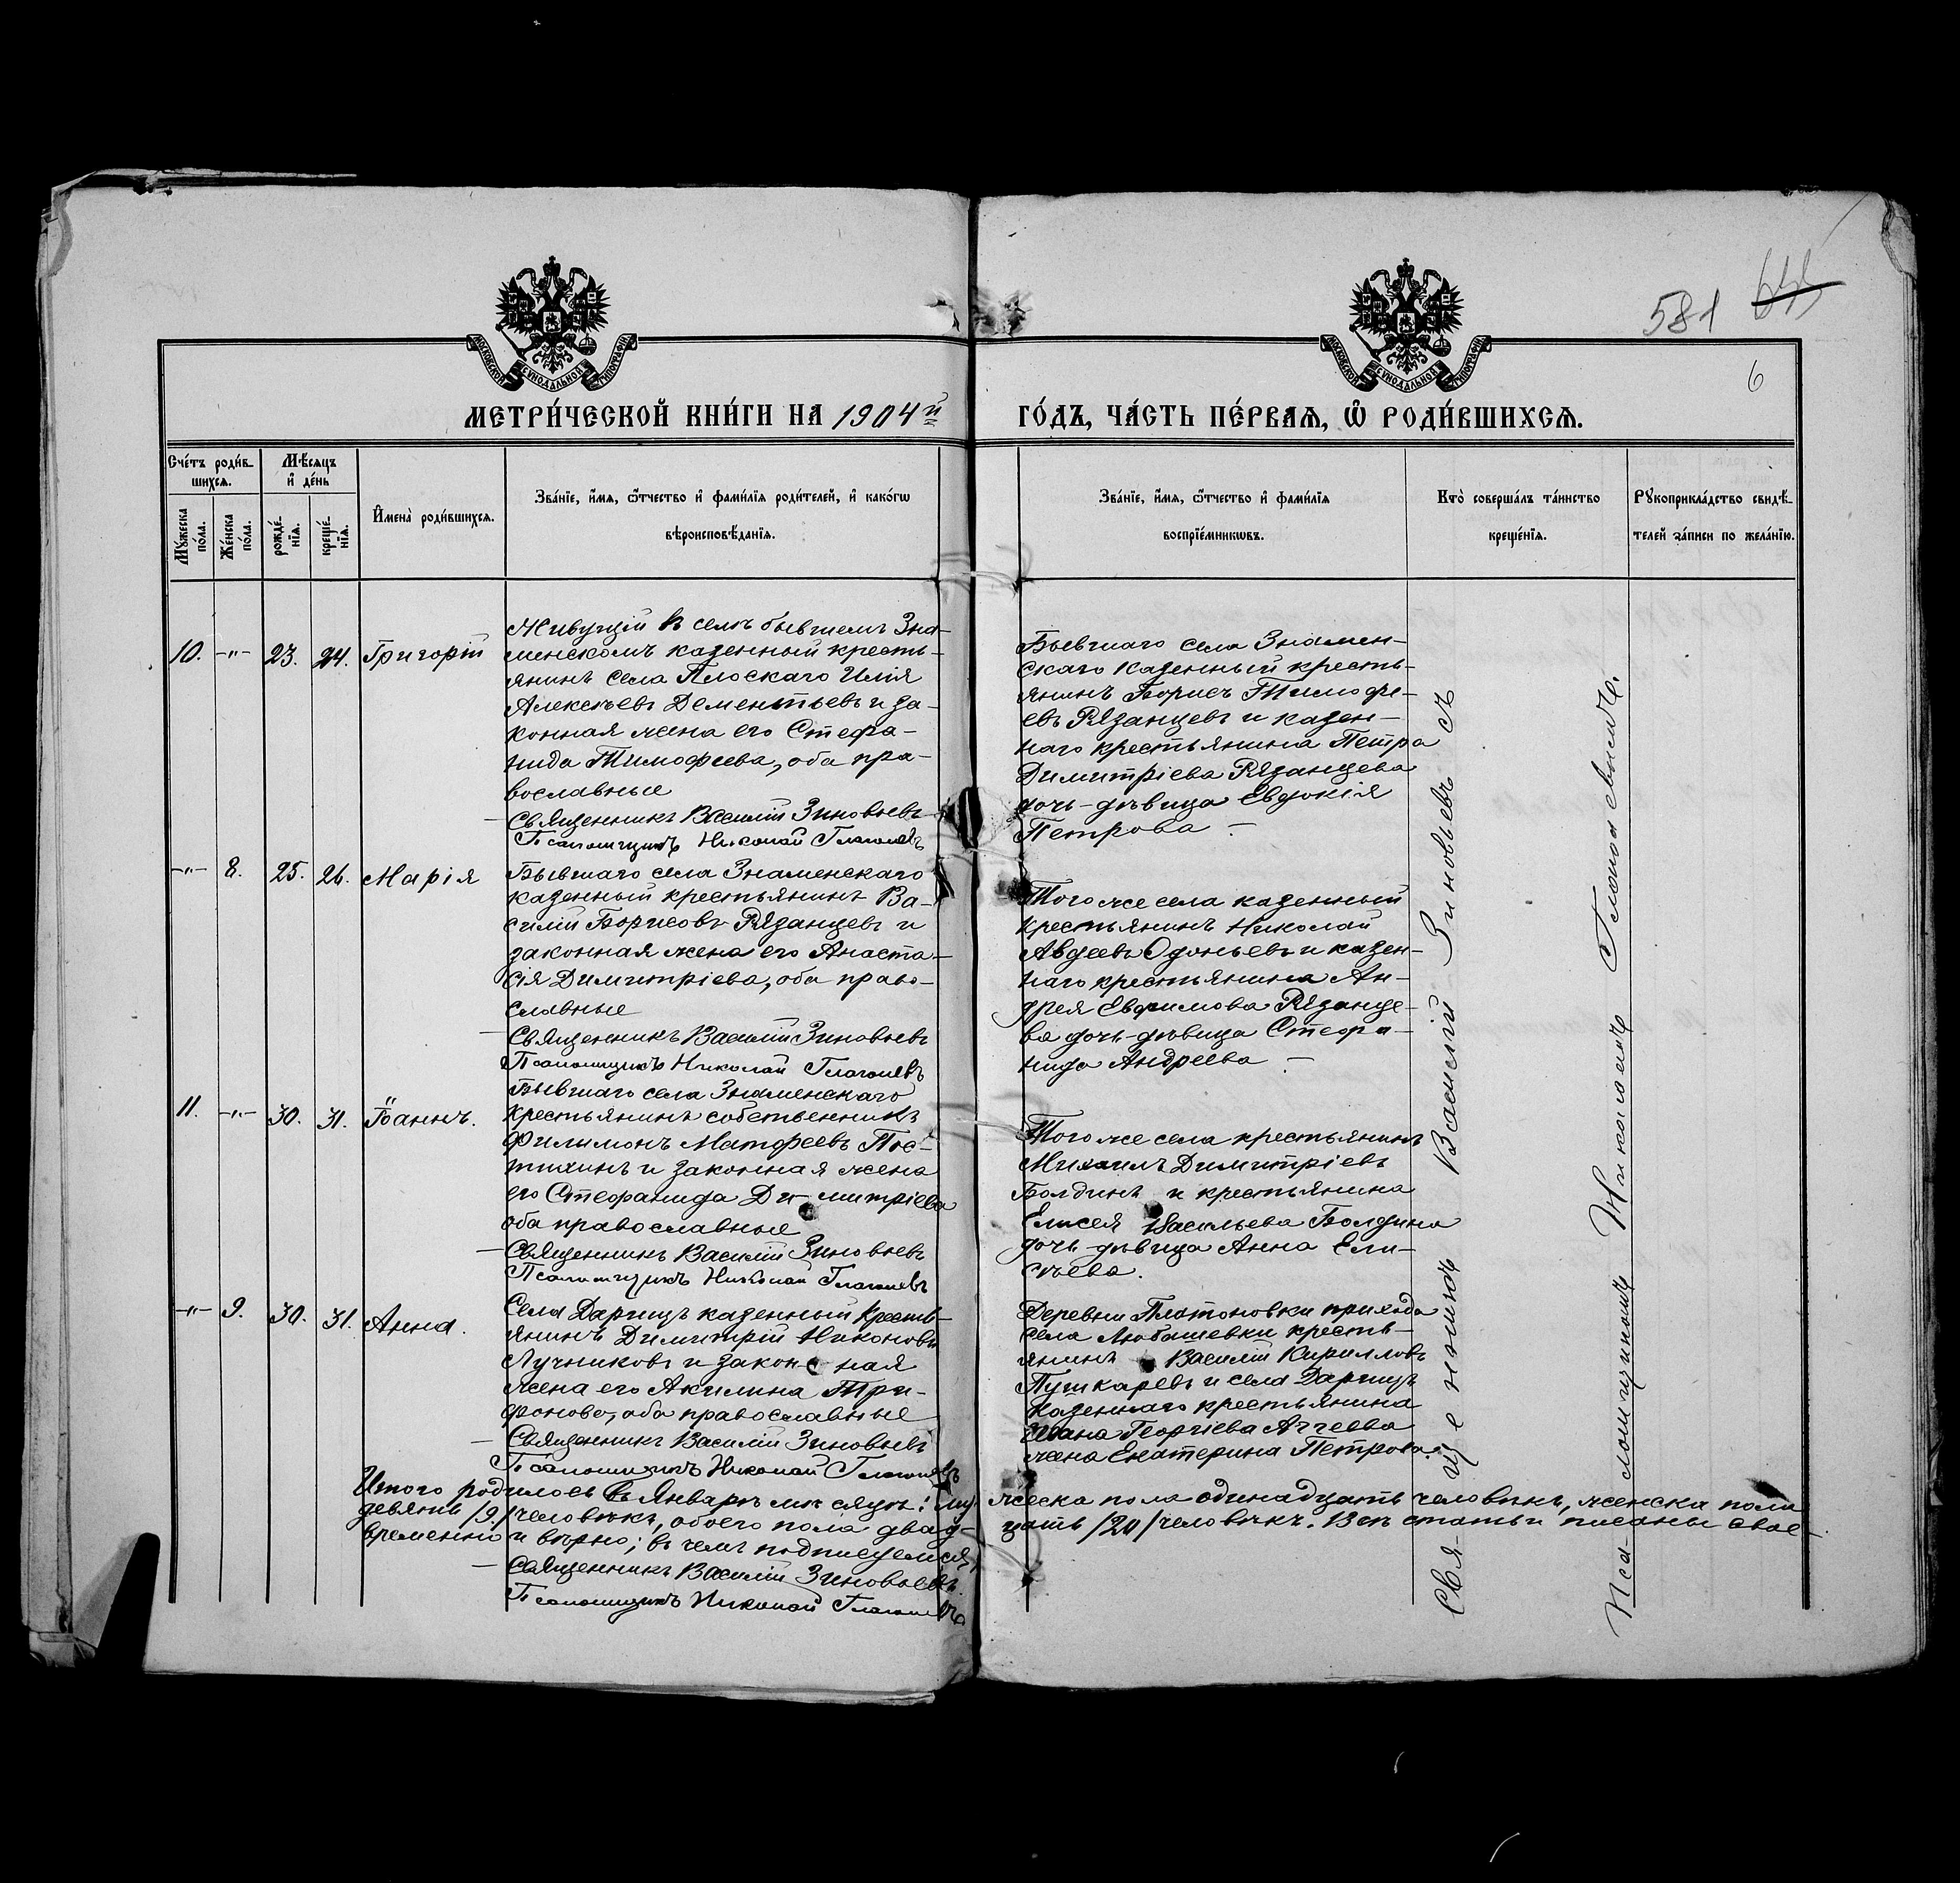 581
6
МОСКОВСКОЙ СѴНОДАЛЬНОЙ ТИПОГРАФІИ
МОСКОВСКОЙ СѴНОДАЛЬНОЙ ТИПОГРАФІИ
МЕТРИ́ЧЕСКОЙ КНИ́ГИ НА 1904й
ГО́ДЪ, ЧА́СТЬ ПЕ́РВАѦ, Ѿ РОДИ́ВШИХСѦ.
Сче́тъ роди́в-
шихсѧ.
Мꙋ́жеска
по́ла.
Же́нска
по́ла.
Мѣ́сѧцъ
и҆ де́нь
рожде́-
нїѧ.
креще́-
нїѧ.
И҆мена̀ роди́вшихсѧ.
Зва́нїе, и҆́мѧ, ѻ҆́тчество и҆ фами́лїѧ роди́телей, и҆ како́гѡ
вѣроисповѣ́данїѧ.
Зва́нїе, и҆́мѧ, ѻ҆́тчество и҆ фами́лїѧ
воспрїе́мникѡвъ.
Кто̀ соверша́лъ та́инство
креще́нїѧ.
Рꙋкоприкла́дство свидѣ́-
телей за́писи по жела́нїю.
10. -"- 23. 24. Григорій
Живущій в селѣ бывшемъ Зна-
менскомъ казенный кресть-
янинъ села Плоскаго Илія
Алексѣевъ Дементьевъ и за-
конная жена его Стефа-
нида Тимофеева, оба пра-
вославные
Священникъ Василій Зиновьевъ
Псаломщикъ Николай Глаголевъ
Бывшаго села Знамен-
скаго казенный кресть-
янинъ Борисъ Тимофе-
евъ Рязанцевъ и казен-
наго крестьянина Петра
Димитріева Рязанцева
дочь-дѣвица Евдокія
Петрова -
-"- 8. 25. 26. Марія
Бывшаго села Знаменскаго
казенный крестьянинъ Ва-
силій Борисовъ Рязанцевъ и
законная жена его Анаста-
сія Димитріева, оба право-
славные
Священникъ Василій Зиновьевъ
Псаломщикъ Николай Глаголевъ
Того же села казенный
крестьянинъ Николай
Авдеевъ Одоньевъ и казен-
наго крестьянина Ан-
дрея Евфимова Рязанце-
ва дочь-дѣвица Стефа-
нида Андреева -
11. -"- 30. 31. Іоаннъ.
Бывшаго села Знаменскаго
крестьянинъ собственникъ
Филимонъ Матфеевъ Пос-
тихинъ и законная жена
его Стефанида Ди- митріева
оба православные
Священникъ Василій Зиновьевъ
Псаломщикъ Николай Глаголевъ
Того же села крестьянинъ
Михаилъ Димитріевъ
Болдинъ и крестьянина
Елисея Васильева Болдина
дочь-дѣвица Анна Ели-
сѣева.
-"- 9. 30. 31. Анна.
Села Дарищъ казенный кресть-
янинъ Димитрій Никоновъ
Лучниковъ и закон- ная
жена его Акилина Три-
фонова, оба православные
Священникъ Василій Зиновьевъ
Псаломщикъ Николай Глаголевъ
Деревни Платоновки прихода
села Любашевки кресть-
янинъ Василій Кирилловъ
Пушкаревъ и села Дарищъ
казеннаго крестьянина
Ивана Георгіева Агѣева
жена Екатерина Петрова.
Итого родилось въ Январѣ мѣсяцѣ: му- жеска пола одинадцать человѣкъ, женска пола
девять /9/ человѣкъ, обоего пола двад- цать /20/ человѣкъ. Всѣ статьи писаны свое-
временно и вѣрно; въ чемъ подписуемся,
Священникъ Василій Зиновьевъ.
Псаломщикъ Николай Глаголевъ
Священникъ Василій Зиновьевъ съ
Псаломщикомъ Николаемъ Глаголевымъ.